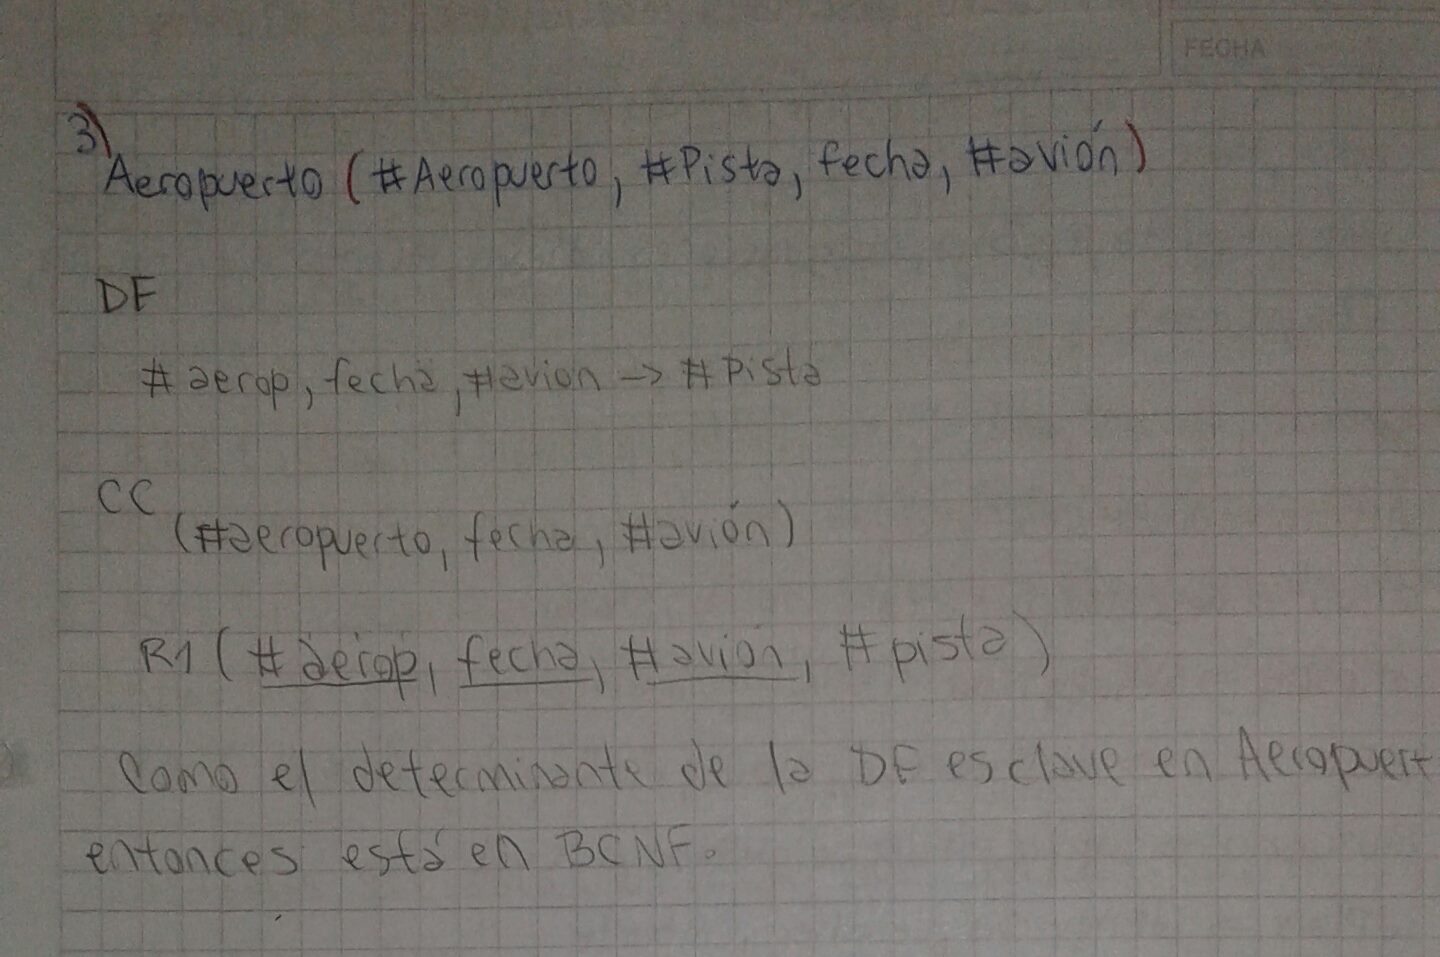 FECHA
3)
Aeropuerto (#Aeropuerto, #Pista, fecha, #avión)
DF
#aerop, fecha, #avion -> #Pista
CC
(#aeropuerto, fecha, #avión)
R1 (#aerop, fecha, #avión, #pista)
Como el determinante de la DF es clave en Aeropuert
entonces está en BCNF.